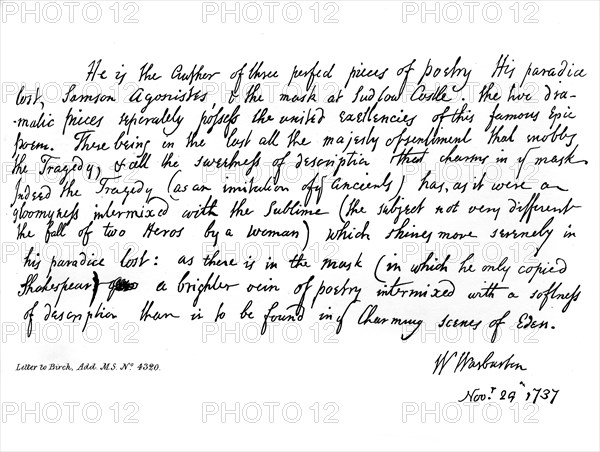 He is the Author of three perfect pieces of poetry His paradice
lost, Samson Agonistes & the mask at Ludlow Castle. The two dra-
-matic pieces seperately possess the united excellencies of this famous Epic
poem. There being in the last all the majesty of sentiment that enobles
the Tragedy, & all the sweetness of description that charms in yͤ mask
Indeed the Tragedy (as an imitation of yͤ Ancients) has, as it were a
gloomyness intermixed with the Sublime (the subject not very different
the fall of two Heros by a woman) which shines more serenely in
his paradice lost: as there is in the mask (in which he only copied
Shakespear) a brighter vein of poetry intermixed with a softness
of description than is to be found in yͤ Charming scenes of Eden.
W Warburton
Novͬ 24ͭͪ 1737
Letter to Birch, Add. M.S. Nº 4320.
PHOTO 12